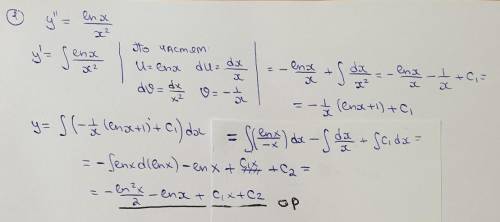 ① y'' = lnx/x²
y' = ∫ lnx/x² | По частям: U = lnx dU = dx/x dϑ = dx/x² ϑ = -1/x | = -lnx/x + ∫ dx/x² = -lnx/x - 1/x + C₁ =
= -1/x (lnx+1) + C₁
y = ∫(-1/x (lnx+1) + C₁) dx = ∫(lnx/-x) dx - ∫ dx/x + ∫ C₁ dx =
= -∫ lnx d(lnx) - lnx + C₁x + C₂ =
= -ln²x/2 - lnx + C₁x + C₂ ОР